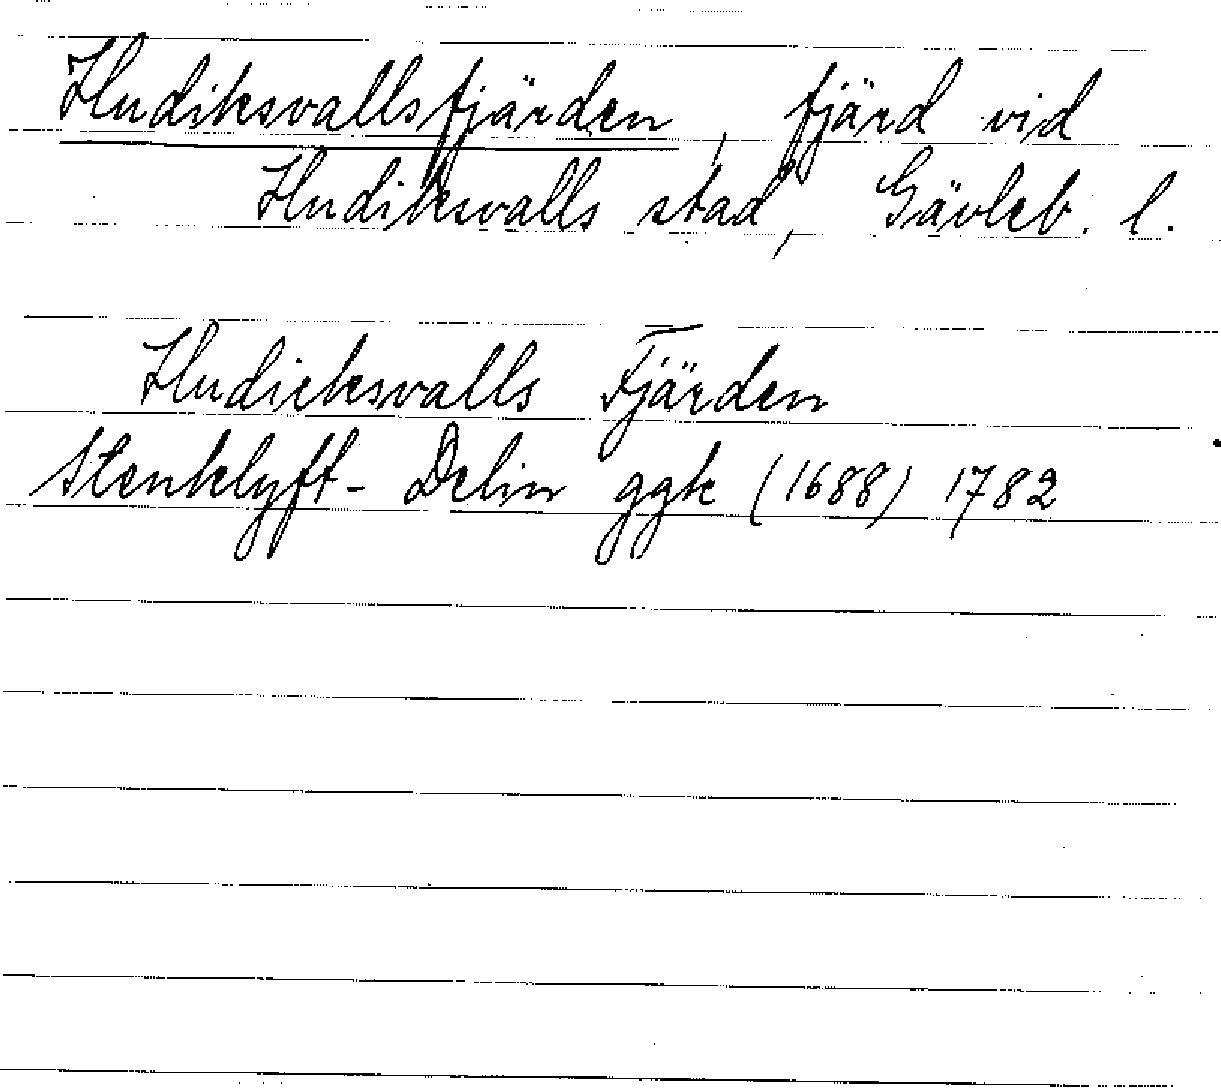 Hudiksvallsfjärden, fjärd vid
Hudiksvalls stad, Gävleb. l.
Hudicksvalls Fjärden
Stenklyft-Delin ggk (1688) 1782